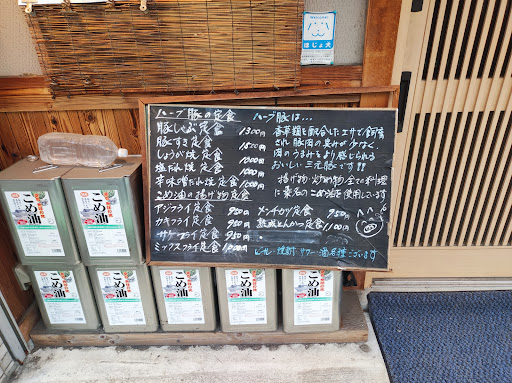 Welcome!
ほじょ犬
ハーブ豚の定食
豚しゃぶ定食 1300円
豚すき定食 1500円
しょうが焼定食 1000円
塩だれ焼定食 1000円
辛味噌だれ焼定食 1000円
こめ油の揚げ物定食
アジフライ定食 950円
カキフライ定食 950円
定食 950円
ミックスフライ定食
ハーブ豚は…
香草類を配合したエサで飼育
され豚肉の臭みが少なく、
肉のうまみをより感じられる
おいしい三元豚です!!
揚げ物・炒め物・全ての料理
に築野のこめ油を使用しています
メンチカツ定食 950円
熟成とんかつ定食 1100円
ビール・焼酎・サワー・酒 ございます
こめ油
こめ油
こめ油
こめ油
こめ油
こめ油
こめ油